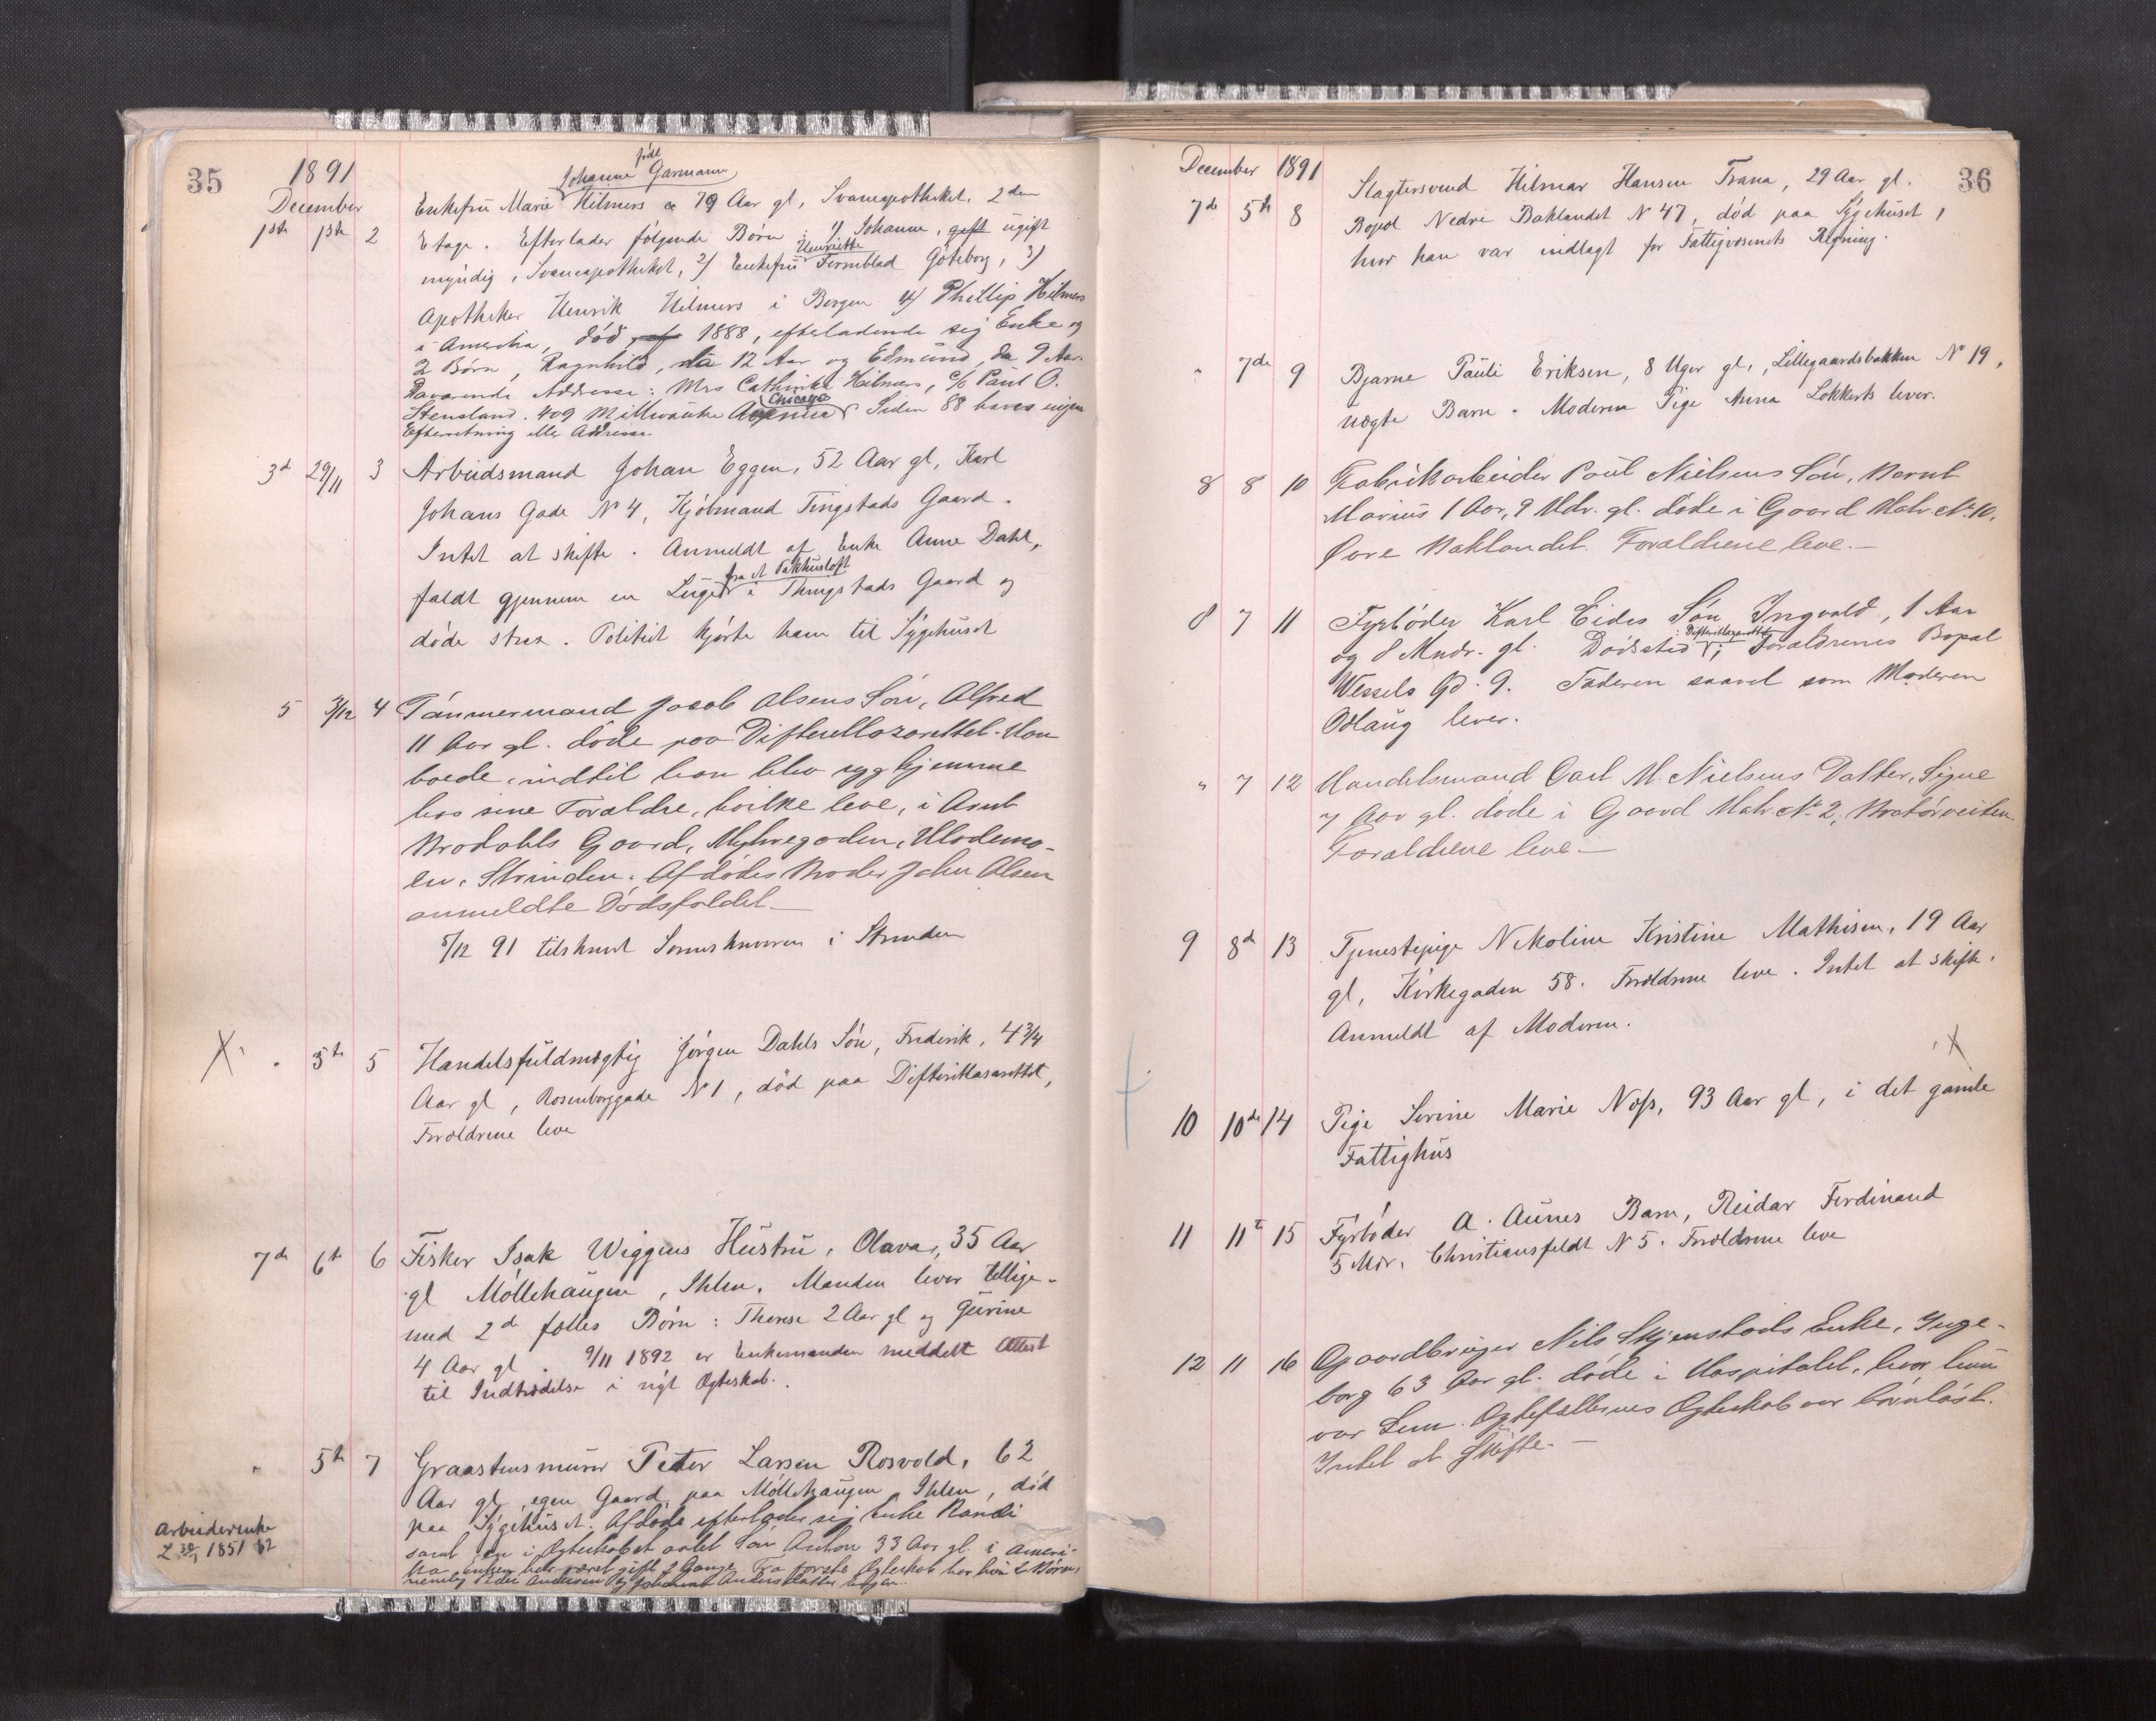 35
1891
December
født
Johanne Garmann
1ste 1ste 2 Enkefru Marie Hilmers 79 Aar gl, Svaneapotheket, 2den
Etage. Efterlader følgende Børn: 1) Johanne, gift ugift
Henriette
myndig, Svaneapotheket, 2) Enkefru Göteborg, 3)
Apotheker Henrik Hilmers i Bergen 4) Phillip Hilmers
i Amerika, død 1888, efterladende sig Enke og
2 Børn, Ragnhild, da 12 Aar og Edmund, da 9 Aar.
Daværende Addresse: Mrs Cathinka Hilmers, c/o Paul O.
Chicago
Stensland. 409 Millwaukee Avenue. Siden 88 haves ingen
Efterretning eller Addresse.
3d 29/11 3 Arbeidsmand Johan Eggen, 52 Aar gl, Karl
Johans Gade № 4, Kjøbmand Tingstads Gaard.
Intet at skifte. Anmeldt af Enke Anne Dahl,
fra et Pakhusloft
faldt gjennem en Luge i Thingstads Gaard og
døde strax. Politiet kjørte ham til Sygehuset
5 3/12 4 Tømmermand Jacob Olsens Søn, Alfred
11 Aar gl. døde paa Difteritlazarettet. Han
boede, indtil han blev syg hjemme
hos sine Forældre, hvilke leve, i Arnt
Brodahls Gaard, Myhregaden, Ulademo-
en, Strinden. Afdødes Broder John Olsen
anmeldte Dødsfaldet.
5/12 91 tilskrevet Sorenskriveren i Strinden
X " 5te 5 Handelsfuldmægtig Jørgen Dahls Søn, Frederik, 4 3/4
Aar gl, Rosenborggade № 1, død paa Difteritlazarettet,
Forældrene leve
7de 6te 6 Fisker Isak Wiggens Hustru, Olava, 35 Aar
gl Møllehaugen, Ihlen. Manden lever tillige-
med 2de fælles Børn: Therese 2 Aar gl og Gurine
4 Aar gl. 9/11 1892 er Enkemanden meddelt Attest
til Indtrædelse i nyt Ægteskab.
" 5te 7 Graastensmurer Peter Larsen Rosvold, 62
Aar gl, egen Gaard paa Møllehaugen Ihlen, død
paa Sygehuset. Afdøde efterlader sig Enke Randi
samt en i Ægteskabet avlet Søn Anton 33 Aar gl. i Ameri-
ka. Enken har været gift 2 Gange. Fra første Ægteskab har hun 2 Børn,
nemlig Peder Andersen og Andersdatter
Arbeiderenke
1851
36
December 1891
7de 5te 8 Slagtersvend Hilmar Hansen Trana, 29 Aar gl.
Bopæl Nedre Baklandet № 47, død paa Sygehuset,
hvor han var indlagt for Fattigvæsenets Regning.
" 7de 9 Bjarne Pauli Eriksen, 8 Uger gl., Lillegaardsbakken № 19,
uægte Barn. Moderen Pige Anna Lokkerts lever.
8 8 10 Fabrikarbeider Paul Nielsens Søn, Bernt
Marius 1 Aar, 9 Mdr. gl. døde i Gaard Matr № 10,
Øvre Baklandet. Forældrene leve.—
8 7 11 Fyrbøder Karl Eides Søn Ingvald, 1 Aar
: Difteritlazarettet
og 8 Mndr. gl. Dødssted ; Forældrenes Bopæl
Wessels Gd. 9. Faderen saavel som Moderen
Odlaug lever.
" 7 12 Handelsmand Carl M. Nielsens Datter, Signe
7 Aar gl. døde i Gaard Matr № 2, Bratørveiten.
Forældrene leve—
9 8de 13 Tjenestepige Nikoline Kristine Mathisen, 19 Aar
gl, Kirkegaden 58. Forældrene leve. Intet at skifte.
Anmeldt af Moderen.
X
10 10de 14 Pige Serine Marie Næss, 93 Aar gl, i det gamle
Fattighus
11 11te 15 Fyrbøder A. Aunes Barn, Reidar Ferdinand
5 Mdr. Christiansfeldt № 5. Forældrene leve
12 11 16 Gaardbruger Nils Skjenstads Enke, Inge-
borg 63 Aar gl. døde i Hospitalet, hvor hun
var Lem. Ægtefællernes Ægteskab var barnløst.
Intet at skifte.—